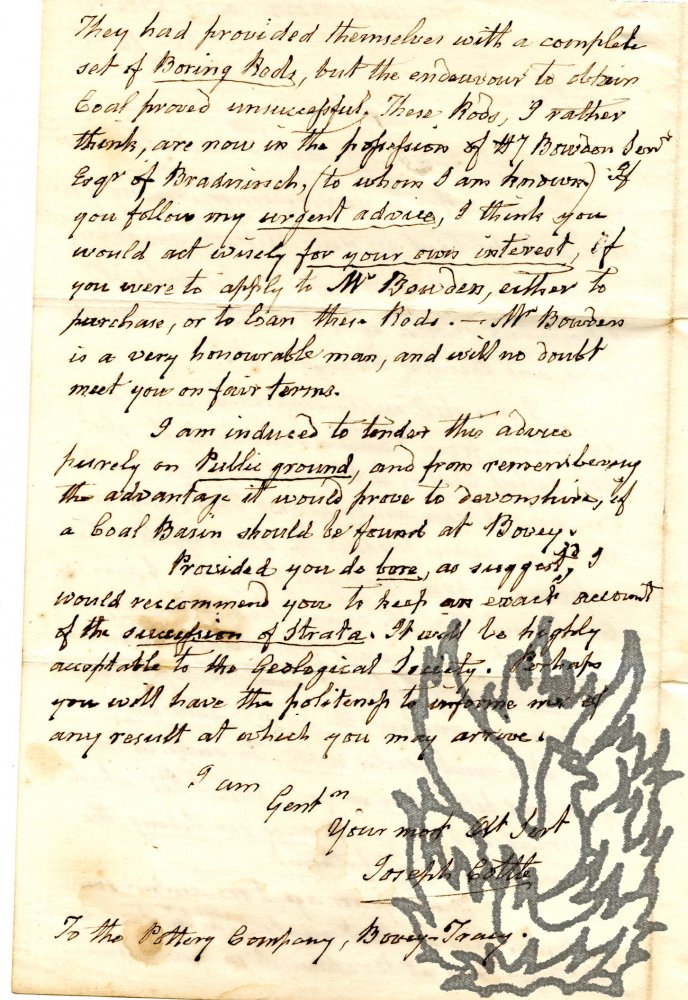 They had provided themselves with a complete
set of Boring Rods, but the endeavour to obtain
Coal proved unsuccessful. These Rods, I rather
think, are now in the possession of Bowden Senr
Esqr of Bradninch, (to whom I am known) If
you follow my urgent advice, I think you
would act wisely for your own interest, if
you were to apply to Mr Bowden, either to
purchase, or to loan these Rods. — Mr Bowden
is a very honourable man, and will no doubt
meet you on fair terms.
I am induced to tender this advice
purely on Public ground, and from remembering
the advantage it would prove to devonshire, if
a Coal Basin should be found at Bovey.
Provided you do bore, as suggested, I
would reccommend you to keep an exact account
of the succession of Strata. It will be highly
acceptable to the Geological Society. Perhaps
you will have the politeness to informe me of
any result at which you may arrive.
I am
Gentn
Your most Obt Sert
Joseph Cottle
To the Pottery Company, Bovey-Tracy.